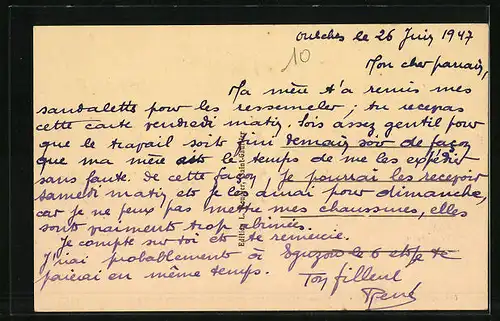 Oulches le 26 Juin 1947
10
Mon cher parrain,
Ma mère t'a remis mes
sandalettes pour les ressemeler ; tu recevras
cette carte vendredi matin. Sois assez gentil pour
que le travail soit fini demain soir de façon
que ma mère ait le temps de me les expédier
sans faute. de cette façon, Je pourrai les recevoir
samedi matin et je les aurai pour dimanche,
car je ne peux pas mettre mes chaussures, elles
sont vraiment trop abimées.
Je compte sur toi et te remercie.
J'irai probablement à Eguzon le 6 et je te
paierai en même temps.
Ton filleul
René